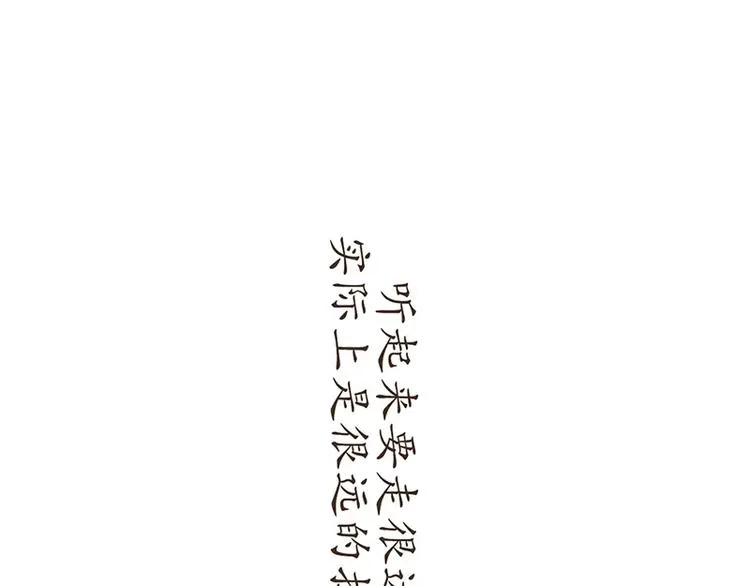 听起来要走很远
实际上是很远的